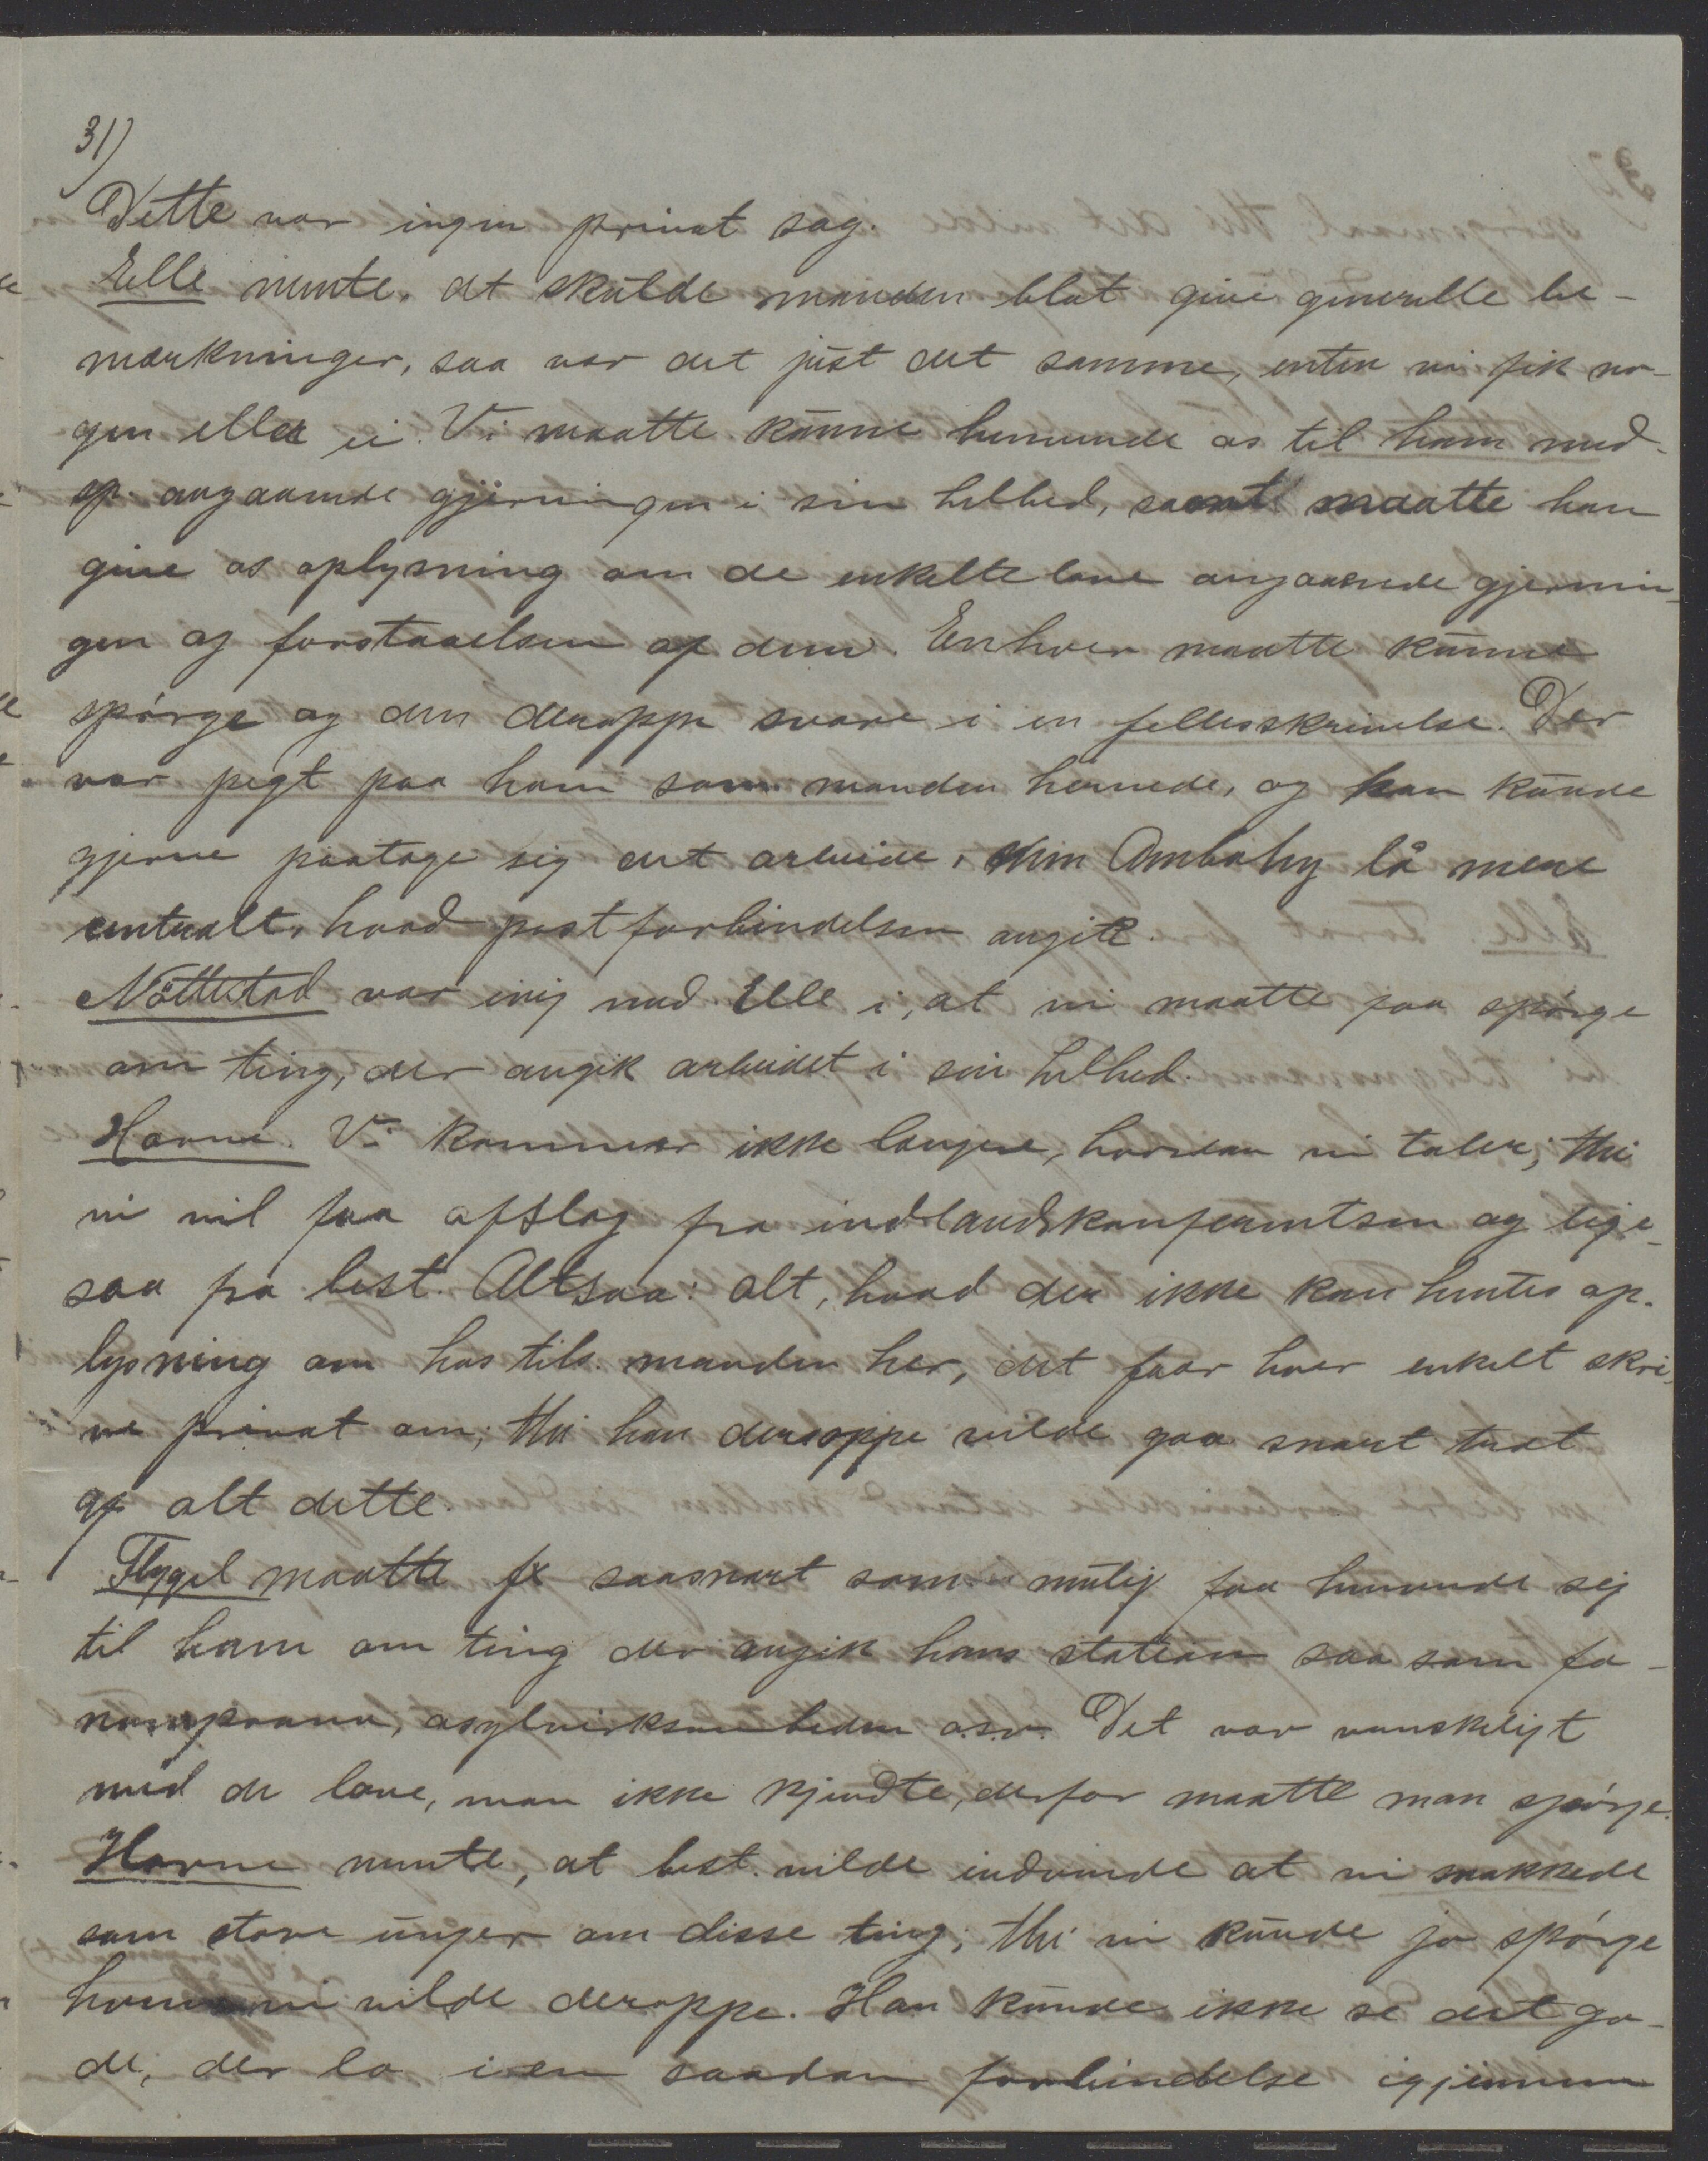 31)
Dette var ingen privat sag.
Elle mente, at skulde manden blot give generelle be-
mærkninger, saa var det just det samme, enten vi fik no-
gen eller ei. Vi maatte kunne henvende os til ham med
sp. angaaende gjerningen i sin helhed, samt maatte han
give os oplysning om de enkelte love angaaende gjernin-
gen og forstaaelsen af dem. Enhver maatte kunne
spörge og den deroppe svare i en fellesskrivelse. Der
var pegt paa ham som manden hernede, og han kunde
gjerne paatage sig det arbeide, men Ambahy lå mere
centralt, hvad postforbindelsen angik.
Nöttestad var enig med Elle i, at vi maatte faa spörge
om ting, der angik arbeidet i sin helhed.
Havne. Vi kommer ikke længere, hvordan vi taler; thi
vi vil faa afslag fra indlandskonferentsen og lige-
saa fra best. Altsaa: alt, hvad der ikke kan hentes op-
lysning om hos tils. manden her, det faar hver enkelt skri-
ve privat om; thi han deroppe vilde gaa snart træt
af alt dette.
Flygel maatte fx saasnart som mulig faa henvende sig
til ham om ting der angik hans station saa som fa-
nompoana, asylvirksomheden o.s.v. Det var vanskeligt
med de love, man ikke kjendte, derfor maatte man spörge.
Havne mente, at best. vilde indvende at vi snakkede
som store unger om disse ting; thi vi kunde jo spörge
hvem vi vilde deroppe. Han kunde ikke se det go-
de, der lo i en saadan forbindelse igjennem